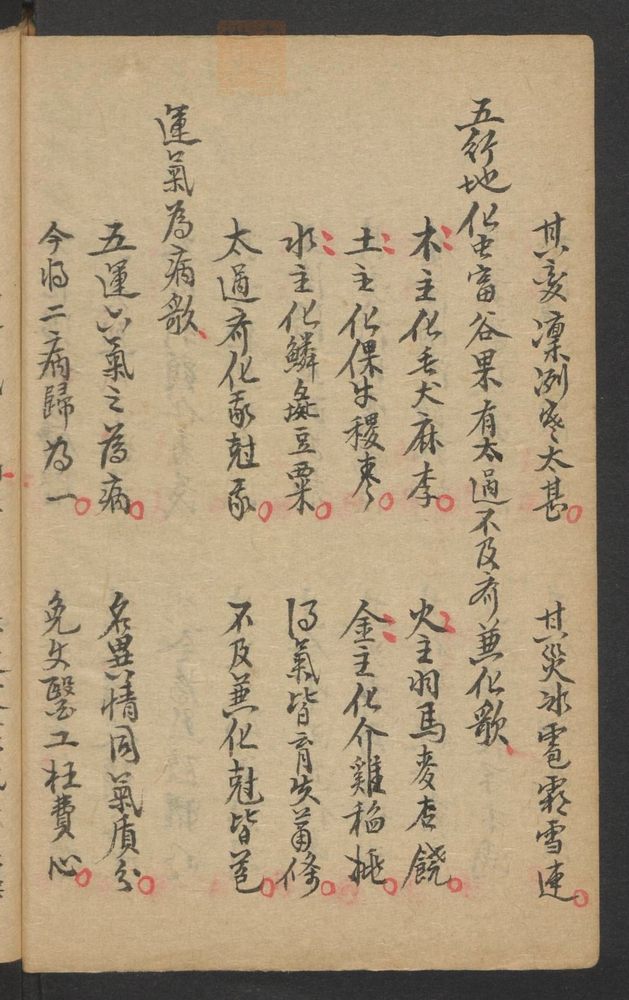 其変凜冽寒太甚。其災冰雹霜雪連。
五行地化虫畜谷果有太過不及齐兼化歌
木主化毛犬麻李。火主羽馬麥杏饒。
土主化倮牛稷枣。金主化介雞稻桃。
水主化鱗彘豆栗。得氣皆育失萧條。
太過齐化我尅我。不及兼化尅皆苞。
運氣為病歌
五運六氣之為病。名異情同氣质分。
今将二病歸為一。免女醫工枉費心。